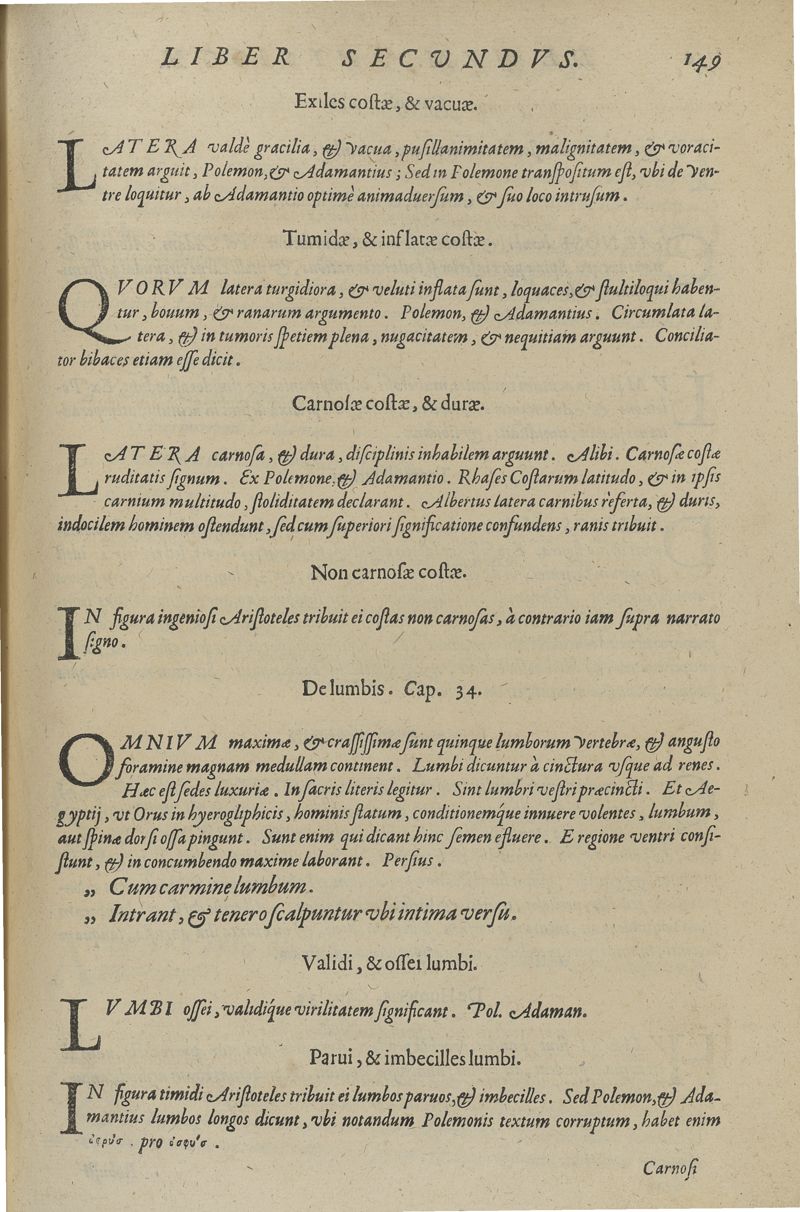 LIBER SECVNDVS. 149
Exiles costæ, & vacuæ.
LATERA valdè gracilia, & vacua, pusillanimitatem, malignitatem, & voraci-
tatem arguit, Polemon, & Adamantius; Sed in Polemone transpositum est, vbi de ven-
tre loquitur, ab Adamantio optimè animaduersum, & suo loco intrusum.
Tumidæ, & inflatæ costæ.
QVORVM latera turgidiora, & veluti inflata sunt, loquaces, & stultiloqui haben-
tur, bouum, & ranarum argumento. Polemon, & Adamantius. Circumlata la-
tera, & in tumoris spetiem plena, nugacitatem, & nequitiam arguunt. Concilia-
tor bibaces etiam esse dicit.
Carnosæ costæ, & duræ.
LATERA carnosa, & dura, disciplinis inhabilem arguunt. Alibi. Carnosæ costæ
ruditatis signum. Ex Polemone, & Adamantio. Rhases Costarum latitudo, & in ipsis
carnium multitudo, stoliditatem declarant. Albertus latera carnibus referta, & duris,
indocilem hominem ostendunt, sed cum superiori significatione confundens, ranis tribuit.
Non carnosæ costæ.
IN figura ingeniosi Aristoteles tribuit ei costas non carnosas, à contrario iam supra narrato
signo.
De lumbis. Cap. 34.
OMNIVM maximæ, & crassissimæ sunt quinque lumborum vertebræ, & angusto
foramine magnam medullam continent. Lumbi dicuntur à cinctura vsque ad renes.
Hæc est sedes luxuriæ. In sacris literis legitur. Sint lumbri vestri præcincti. Et Ae-
gyptij, vt Orus in hyerogliphicis, hominis statum, conditionemq́ue innuere volentes, lumbum,
aut spinæ dorsi ossa pingunt. Sunt enim qui dicant hinc semen efluere. E regione ventri consi-
stunt, & in concumbendo maxime laborant. Persius.
„ Cum carmine lumbum.
„ Intrant, & tenero scalpuntur vbi intima versu.
Validi, & ossei lumbi.
LVMBI ossei, validiq́ue virilitatem significant. Pol. Adaman.
Parui, & imbecilles lumbi.
IN figura timidi Aristoteles tribuit ei lumbos paruos, & imbecilles. Sed Polemon, & Ada-
mantius lumbos longos dicunt, vbi notandum Polemonis textum corruptum, habet enim
pro .
Carnosi